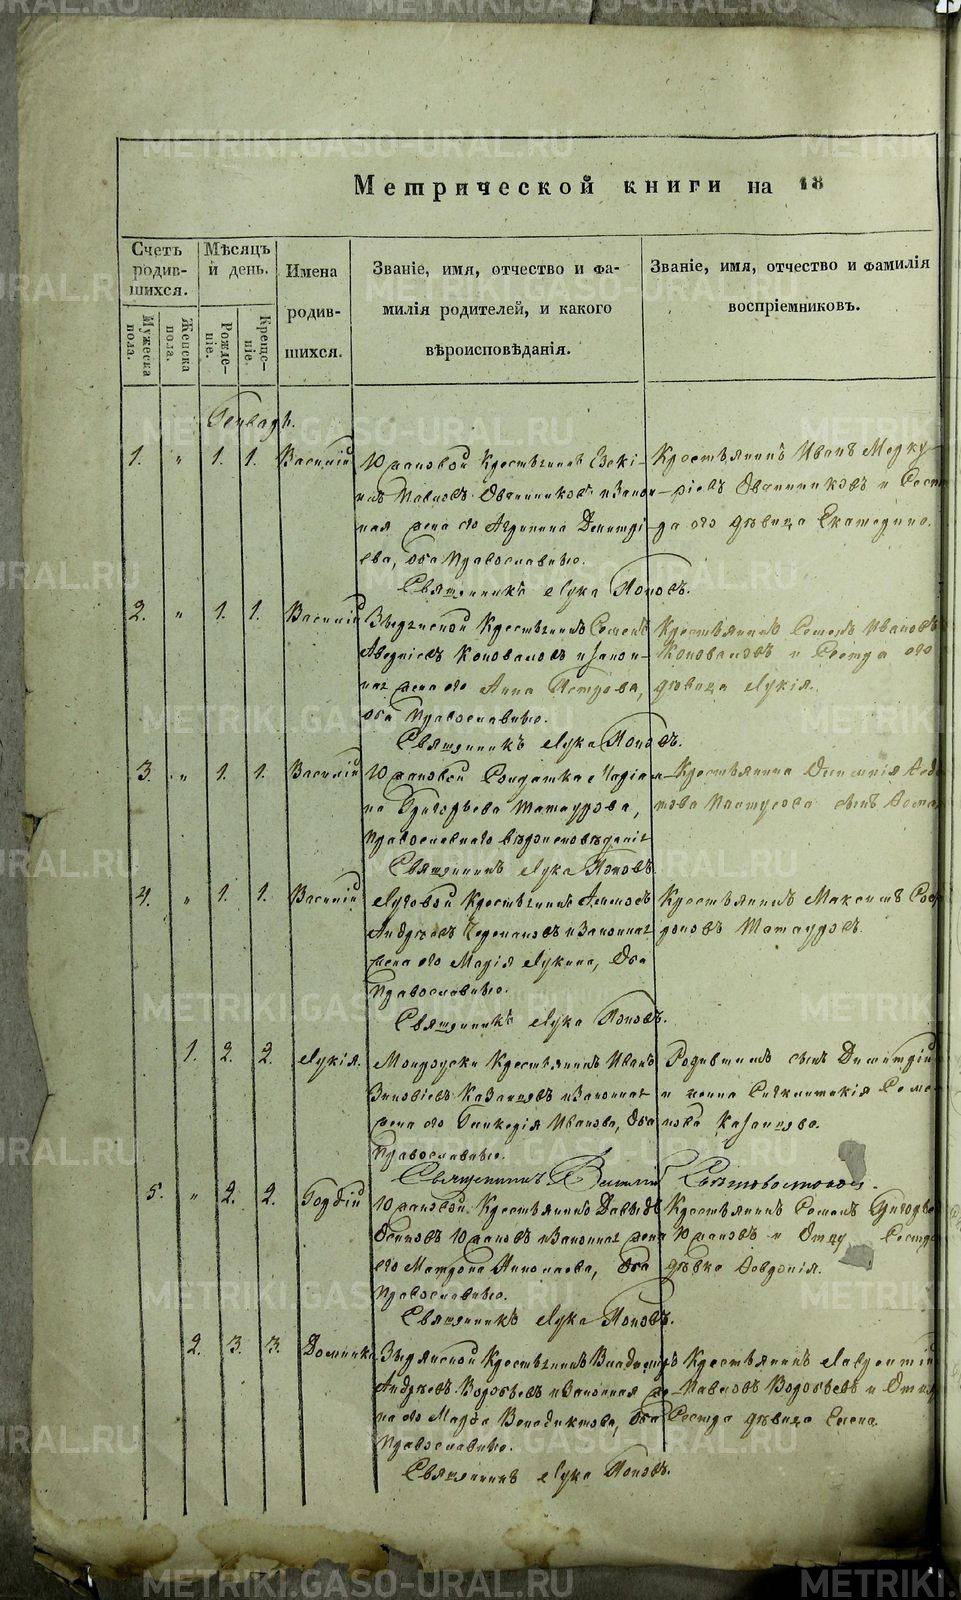 Метрической книги на 18
Счетъ родившихся.
Мужеска пола.
Женска пола.
Мѣсяцъ и день.
Рожденіе.
Крещеніе.
Имена родившихся.
Званіе, имя, отчество и фамилія родителей, и какого вѣроисповѣданія.
Званіе, имя, отчество и фамилія воспріемниковъ.
Генварь.
1. " 1. 1. Василій
Крестьянинъ
Павловъ Овчинниковъ и закон-
ная жена его Агрипина Дементі-
ева, оба Православные.
Священникъ Лука Поповъ.
Крестьянинъ Иванъ Мерку-
ріевъ Овчинниковъ и Сест-
ра его дѣвица Екатерина.
2. " 1. 1. Василій
Крестьянинъ Семенъ
Коноваловъ и закон-
ная жена его Анна Петрова,
оба Православные.
Священникъ Лука Поповъ.
Крестьянинъ Семенъ Ивановъ
Коноваловъ и Сестра его
дѣвица Лукія.
3. " 1. 1. Василій
Солдатка Марія
Григорьева Татаурова,
Православнаго вѣроисповѣданія
Священникъ Лука Поповъ.
Крестьянина
сынъ
4. " 1. 1. Василій
Луговой Крестьянинъ
Андреевъ Черепановъ и законная
жена его Марія Лукина, Оба
Православные.
Священникъ Лука Поповъ.
Крестьянинъ Максимъ
Татауровъ.
1. 2. 2. Лукія.
Крестьянинъ Иванъ
Зиновіевъ Казанцевъ и законная
жена его Гликерія Иванова, Оба
Православные.
Священникъ Василій
Родившихъ сынъ Димитрій
и жена Казанцева.
5. " 2. 2. Гордій
Крестьянинъ Давыдъ
Осиповъ Юрановъ и законная жена
его Матрона Николаева, Оба
Православные.
Священникъ Лука Поповъ.
Крестьянинъ Семенъ Григорьевъ
Юрановъ и Отцу Сестра
дѣвка Февронія.
2. 3. 3. Домника
Крестьянинъ Владимиръ
Андреевъ Воробьевъ и законная же-
на его Марфа Венедиктова, Оба
Православные.
Священникъ Лука Поповъ.
Крестьянинъ Лаврентій
Павловъ Воробьевъ и Отцу
Сестра дѣвица Елена.
METRIKI.GASO-URAL.RU